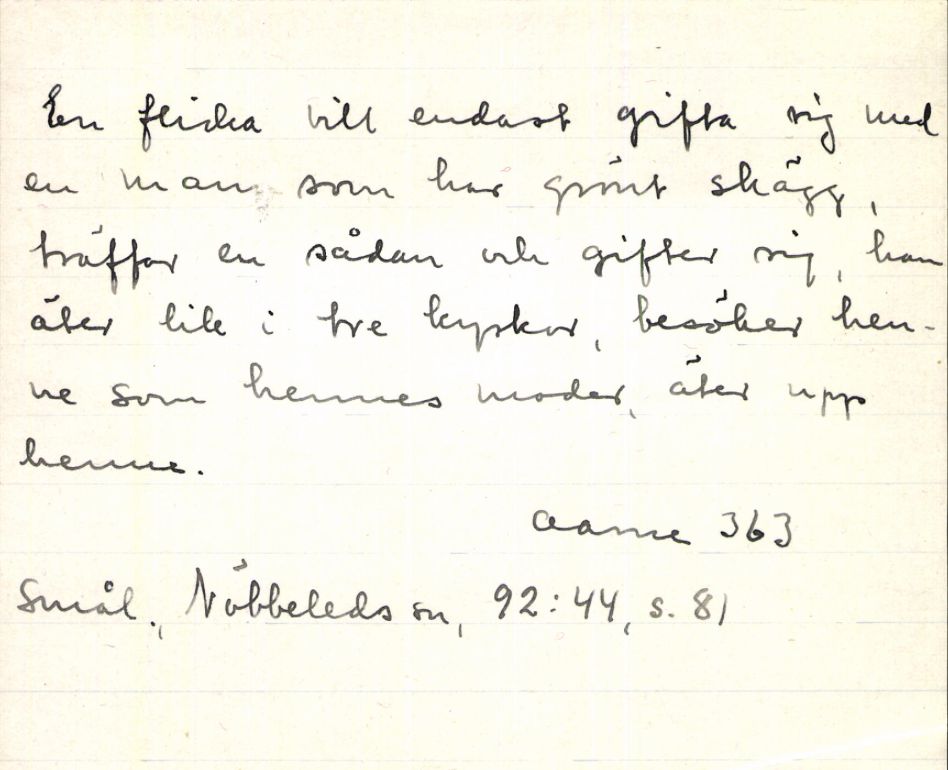 En flicka vill endast gifta sig med
en man som har grönt skägg,
träffar en sådan och gifter sig, han
äter lik i tre kyrkor, besöker hen-
ne som hennes moder, äter upp
henne.
Aarne 363
Smål., Nöbbeleds sn, 92:44, s. 81